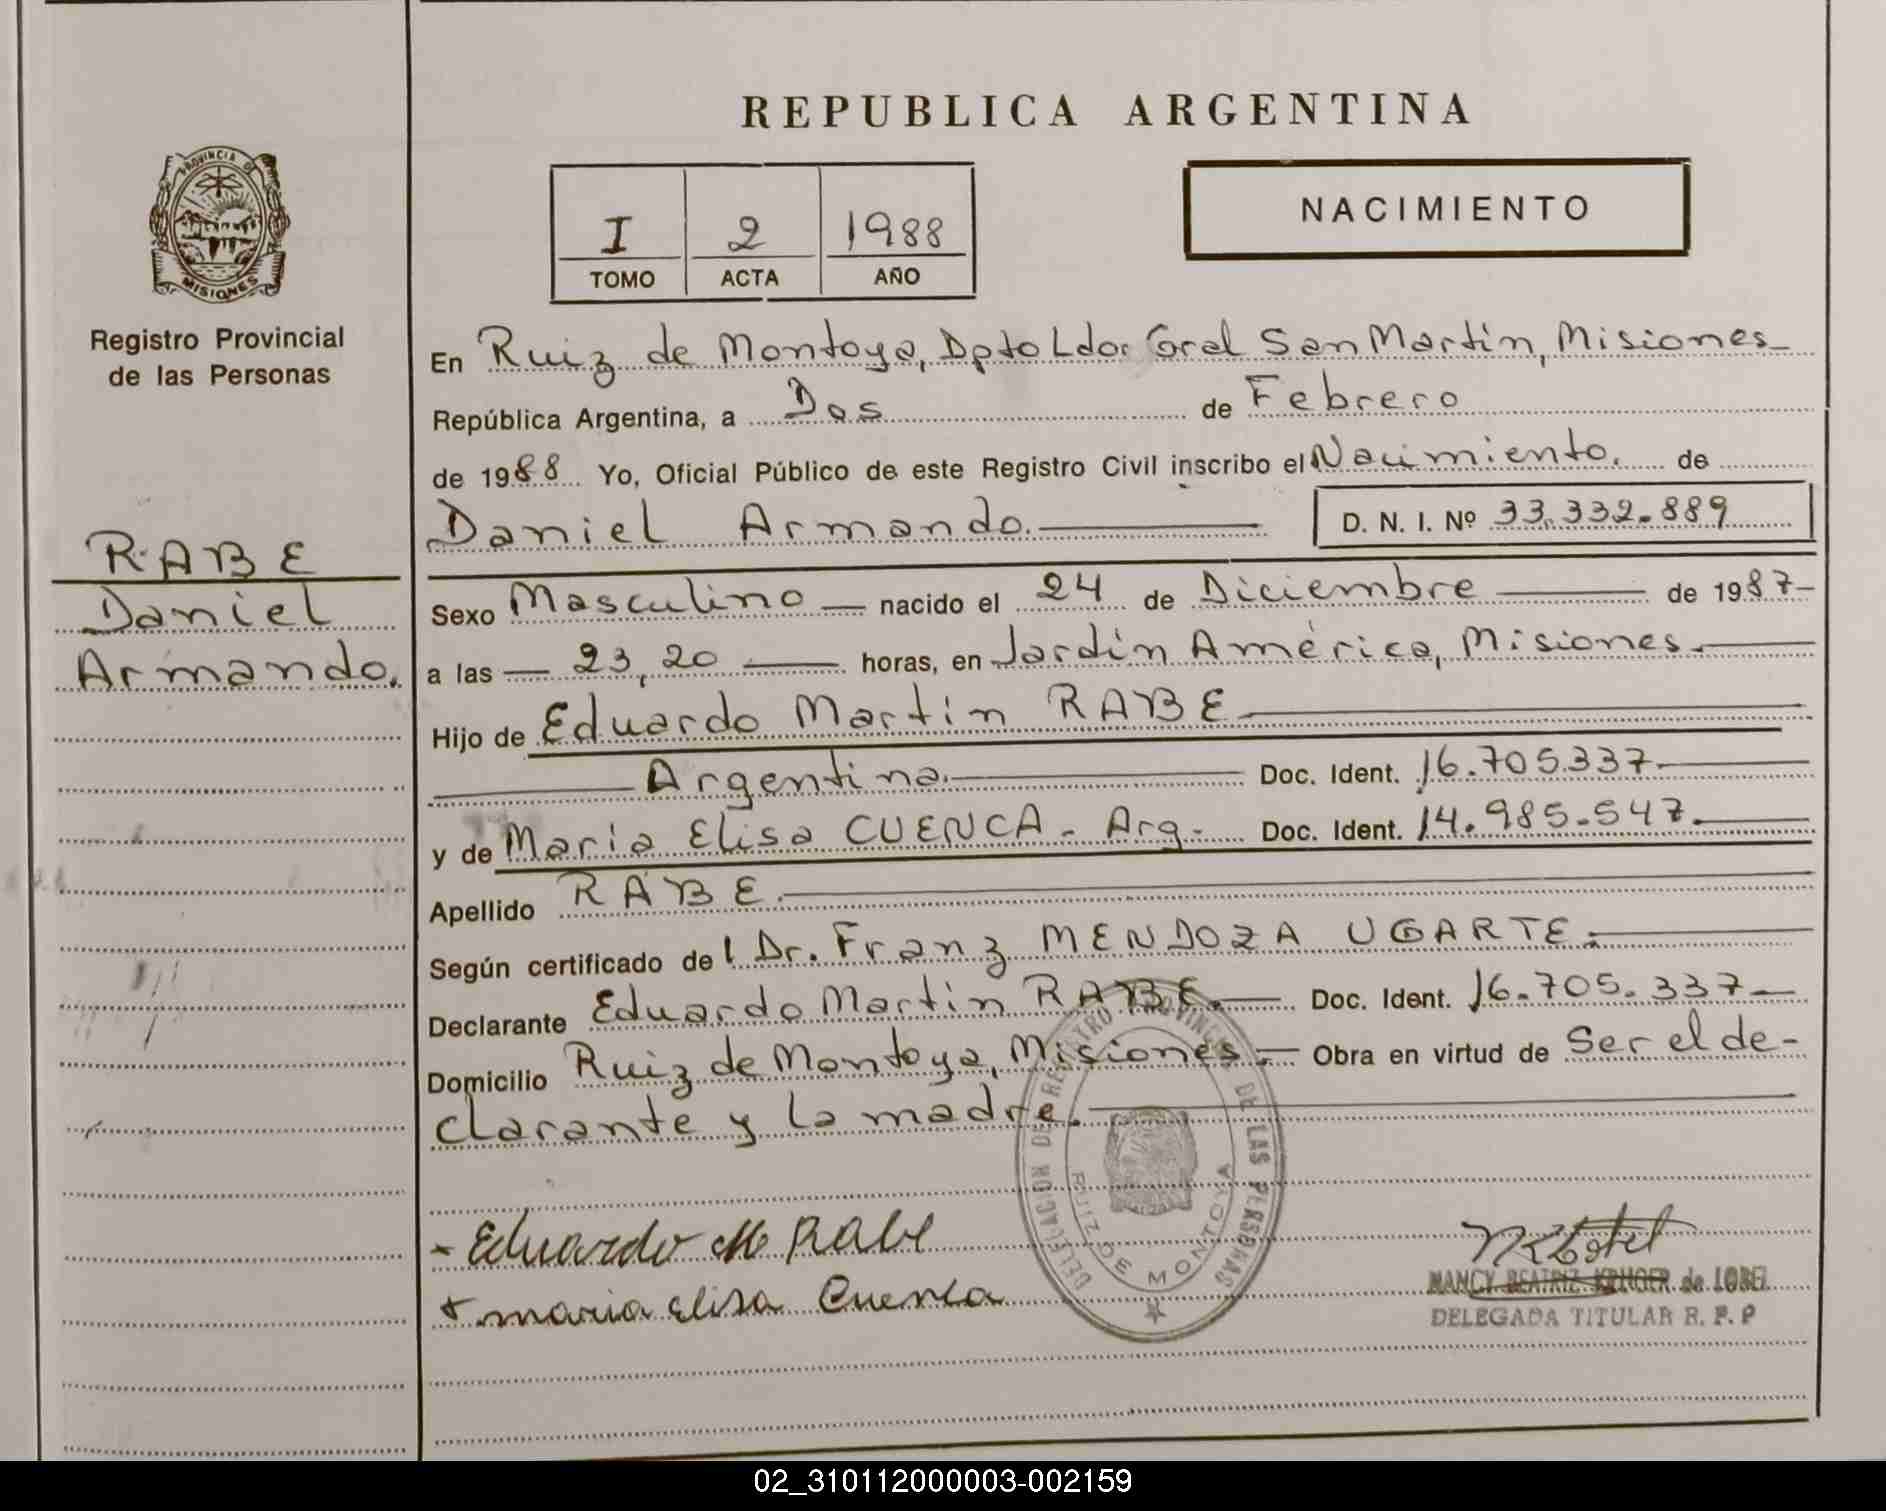 REPUBLICA ARGENTINA
PROVINCIA DE
MISIONES
Registro Provincial
de las Personas
I 2 1988
TOMO ACTA AÑO
NACIMIENTO
En Ruiz de Montoya, Dpto Ldor. Gral San Martín, Misiones-
República Argentina, a Dos de Febrero
de 1988 Yo, Oficial Público de este Registro Civil inscribo el Nacimiento. de
Daniel Armando. D. N. I. Nº 33.332.889
RABE
Daniel
Armando.
Sexo Masculino — nacido el 24 de Diciembre — de 1987-
a las — 23,20 — horas, en Jardín América, Misiones.
Hijo de Eduardo Martín RABE
Argentina. Doc. Ident. 16.705.337.
y de María Elisa CUENCA - Arg. Doc. Ident. 14.985.547.
Apellido RABE.
Según certificado de l Dr. Franz MENDOZA UGARTE.
Declarante Eduardo Martín RABE. Doc. Ident. 16.705.337-
Domicilio Ruiz de Montoya, Misiones.- Obra en virtud de Ser el de-
clarante y la madre.
DELEGACION DE REGISTRO PROVINCIAL DE LAS PERSONAS
RUIZ DE MONTOYA
- Eduardo M Rabe
+ maria Elisa Cuenca
NANCY BEATRIZ KRUGER de LOBEL
DELEGADA TITULAR R. P. P
02_310112000003-002159